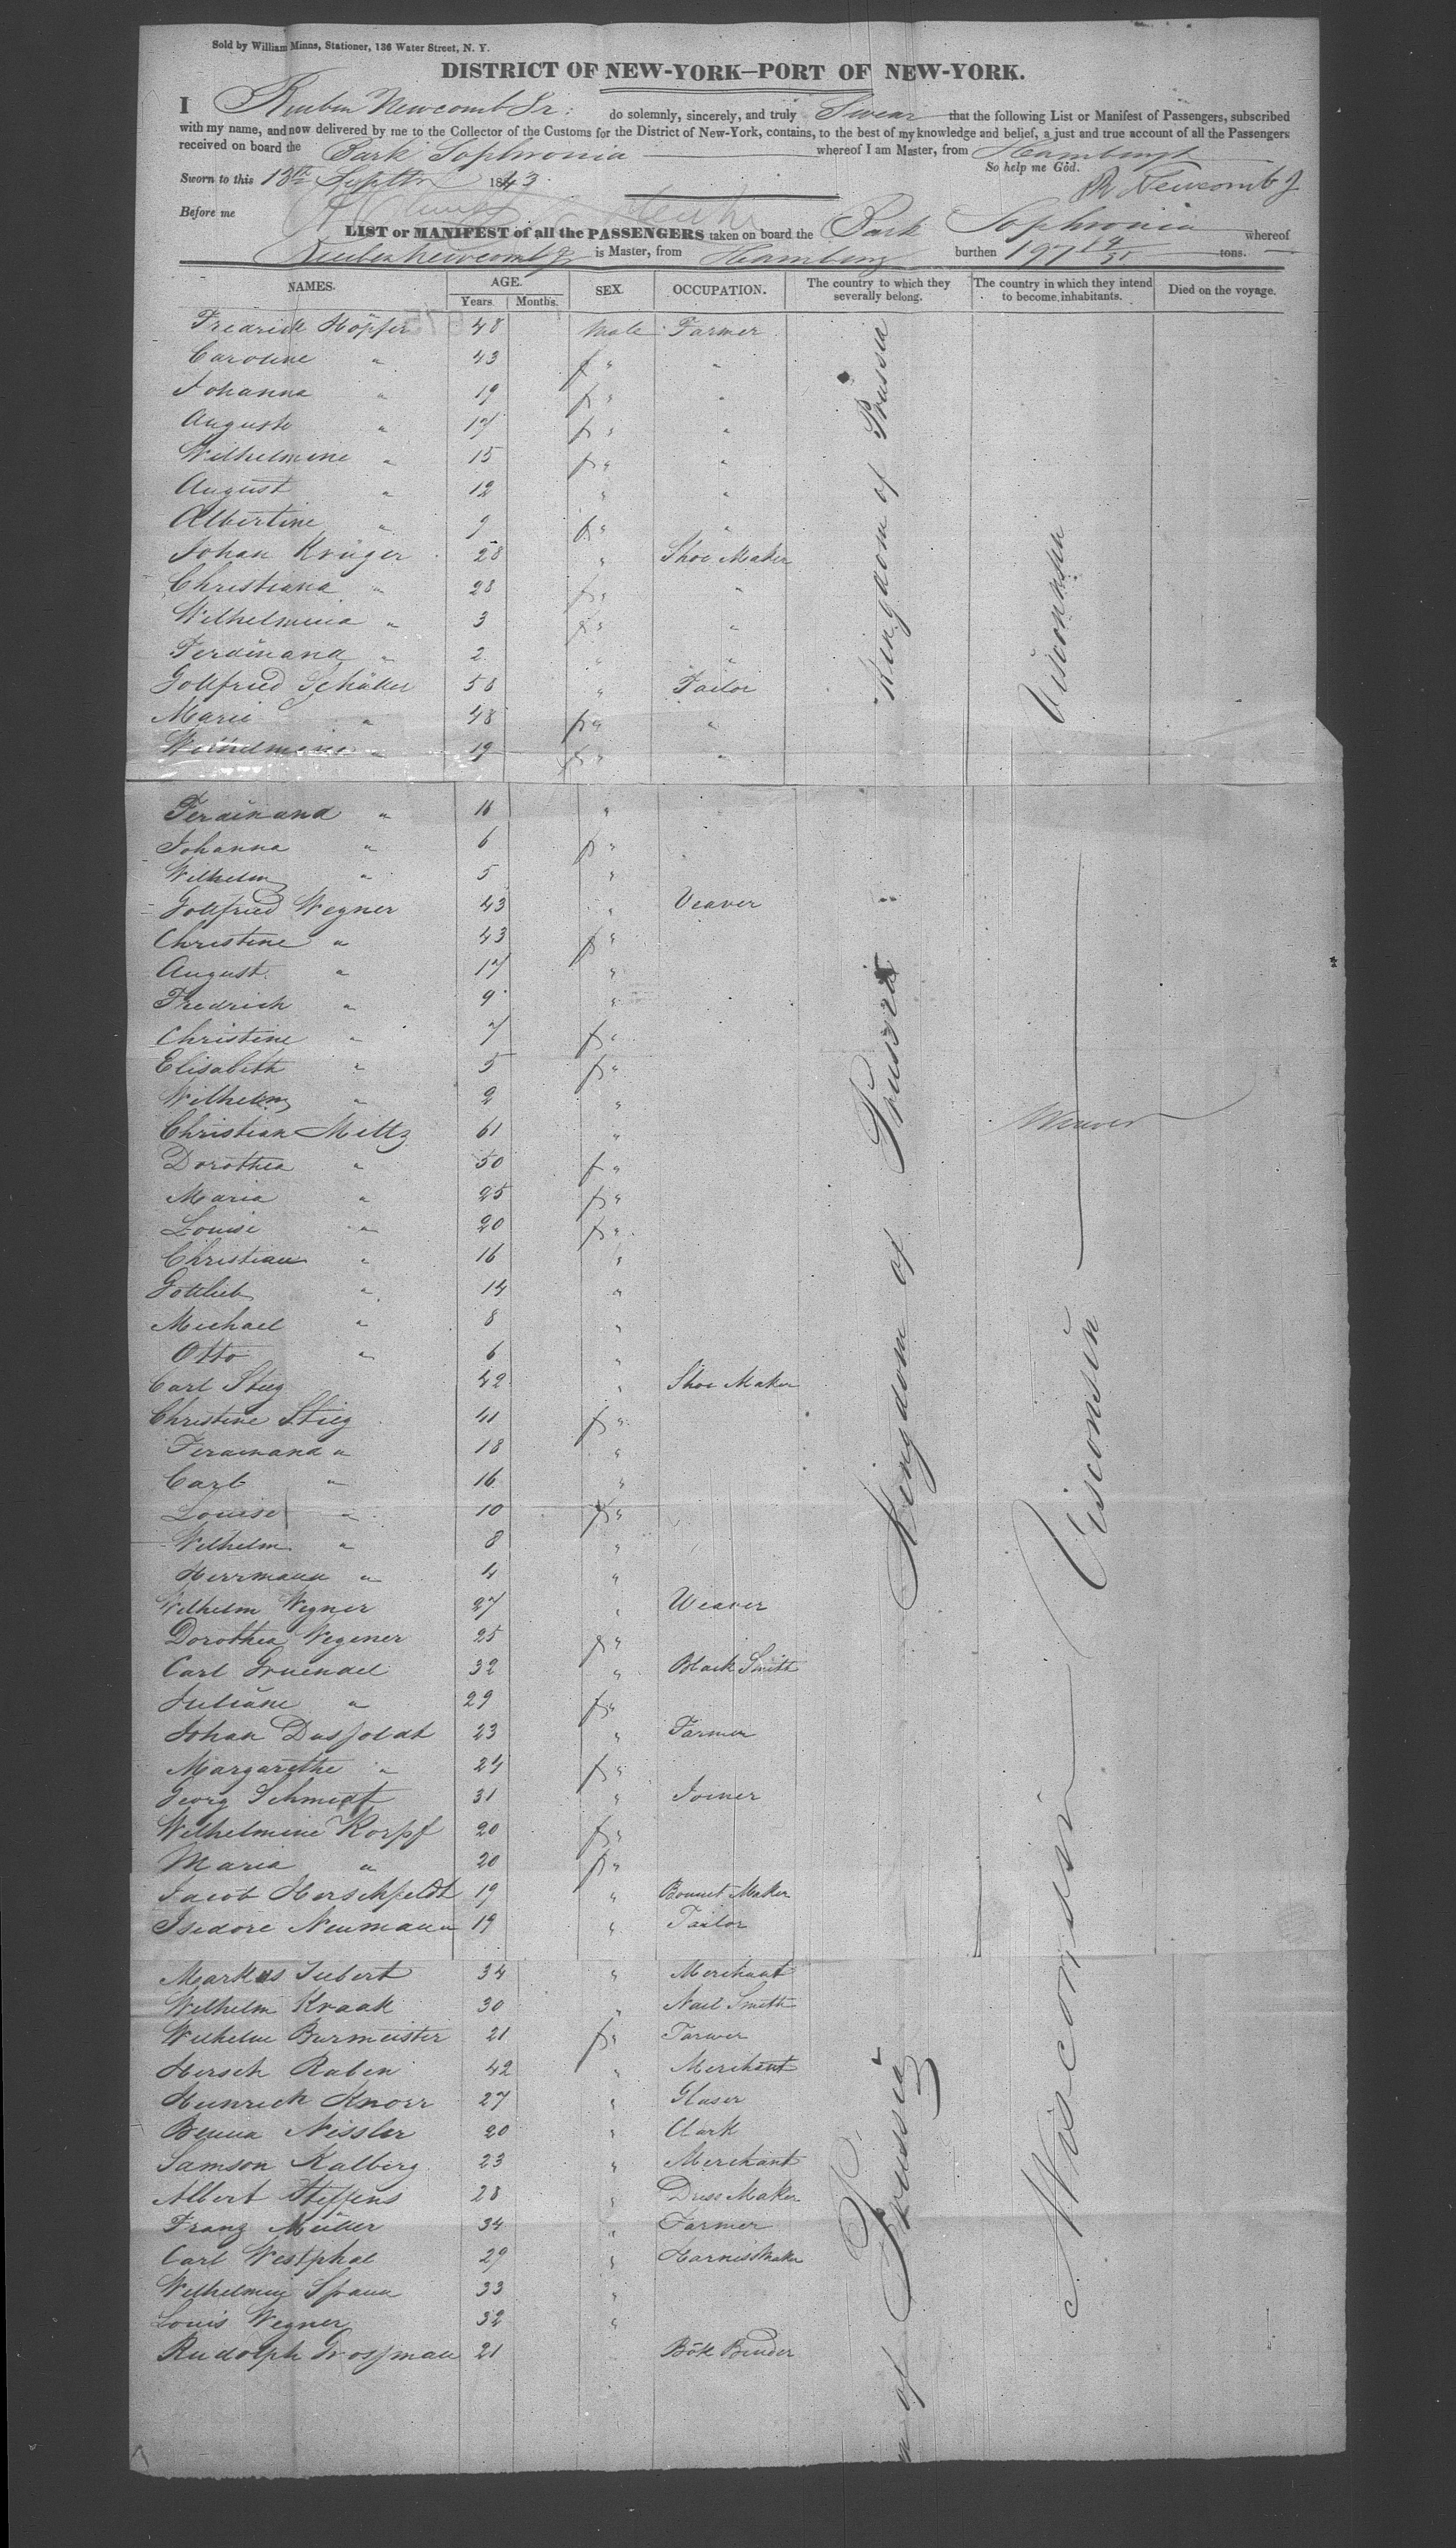 Sold by William Minns, Stationer, 136 Water Street, N. Y.
DISTRICT OF NEW-YORK—PORT OF NEW-YORK.
I Reuben Newcomb Jr: do solemnly, sincerely, and truly Swear that the following List or Manifest of Passengers, subscribed
with my name, and now delivered by me to the Collector of the Customs for the District of New-York, contains, to the best of my knowledge and belief, a just and true account of all the Passengers
received on board the Bark Sophronia whereof I am Master, from Hamburgh
So help me God.
Sworn to this 13th Septbr 1843. R Newcomb J
Before me
LIST or MANIFEST of all the PASSENGERS taken on board the Bark Sophronia whereof
Reuben Newcomb J is Master, from Hamburg burthen 197 tons.
NAMES. AGE. SEX. OCCUPATION. The country to which they severally belong. The country in which they intend to become inhabitants. Died on the voyage.
Years. Months.
Fredrick Höpfer 48 Male Farmer
Caroline " 43 f " "
Johanna " 19 f " "
Auguste " 17 f " "
Wilhelmine " 15 f " "
August " 12 " "
Albertine " 9 f " "
Johan Krüger 28 " Shoe Maker
Christiana " 28 f " "
Wilhelmina " 3 f " "
Ferdinand " 2 " "
Gottfried 58 " Tailor
Marie " 48 f " "
Wilhelmine " 19 f " "
Kingdom of Prussia
Visconsin
Ferdinand " 11 "
Johanna " 6 f "
Wilhelm " 5 "
Gottfried Wegner 43 " Veaver
Christine " 43 f "
August " 17 "
Fredrich " 9 "
Christine " 7 f "
Elisabeth " 5 f "
Wilhelm " 2 "
Christian Miltz 61 " Weaver
Dorothea " 50 f "
Maria " 25 f "
Louise " 20 f "
Christian " 16 "
Gottlieb " 14 "
Michael " 8 "
Otto " 6 "
Carl Stieg 42 " Shoe Maker
Christine Stieg 41 f "
Ferdinand " 18 "
Carl " 16 "
Louise " 10 f "
Wilhelm " 8 "
Herrmann " 4 "
Wilhelm Wegner 27 " Weaver
Dorothea Wegener 25 f "
Carl Gruendel 32 " Black Smith
Juliane " 29 f "
Johan 23 " Farmer
Margarethe " 24 f "
Georg Schmidt 31 " Joiner
Wilhelmine Korpf 20 f "
Maria " 20 f "
Jacob Herschfeldt 19 " Bonnet Maker
Isidore Neumann 19 " Tailor
Kingdom of Prussia
Visconsin
Markus 34 " Merchant
Wilhelm Kraak 30 " Nail Smith
Wilhelm Burmeister 21 f " Farmer
Hersch Ruben 42 " Merchant
Heinrich Knorr 27 " Glaser
Nissler 20 " Clark
Samson Kalberg 23 " Merchant
Albert Steffens 28 " Dress Maker
Franz Müller 34 " Farmer
Carl Westphal 29 " Harnissmaker
Wilhelmin Spann 33 "
Louis Wegner 32 "
Rudolph Grossman 21 Bök Binder
of Prussia
Wisconsin